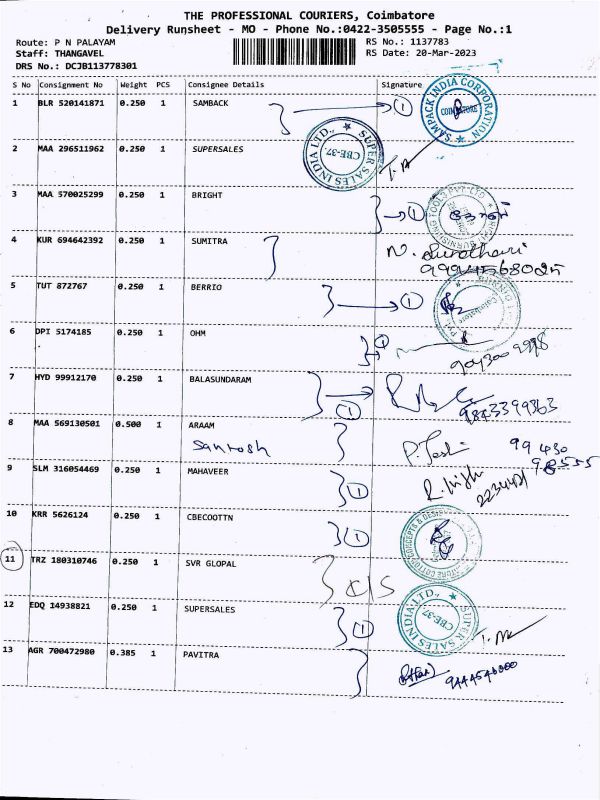 THE PROFESSIONAL COURIERS, Coimbatore
Delivery Runsheet - MO - Phone No.:0422-3505555 - Page No.:1
Route: P N PALAYAM RS No.: 1137783
Staff: THANGAVEL RS Date: 20-Mar-2023
DRS No.: DCJB113778301
S No Consignment No Weight PCS Consignee Details Signature
1 BLR 520141871 0.250 1 SAMBACK 1
SAMPACK INDIA CORPORATION COIMBATORE
2 MAA 296511962 0.250 1 SUPERSALES
SUPER SALES INDIA LTD., CBE-37.
3 MAA 570025299 0.250 1 BRIGHT 1
4 KUR 694642392 0.250 1 SUMITRA
5 TUT 872767 0.250 1 BERRIO 1
Coimbatore
6 DPI 5174185 0.250 1 OHM 1
7 HYD 99912170 0.250 1 BALASUNDARAM 1
9843399363
8 MAA 569130501 0.500 1 ARAAM
Santosh
99430
98555
9 SLM 316054469 0.250 1 MAHAVEER 1
10 KRR 5626124 0.250 1 CBECOOTTN 1
11 TRZ 180310746 0.250 1 SVR GLOPAL
C/S
12 EDQ 14938821 0.250 1 SUPERSALES 1
SUPER SALES INDIA LTD., CBE-37.
13 AGR 700472980 0.385 1 PAVITRA